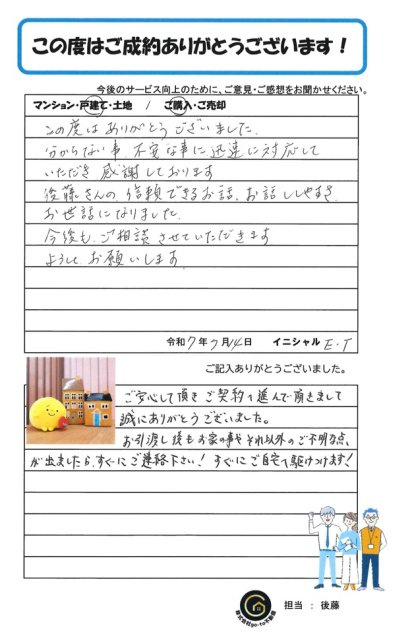 この度はご成約ありがとうございます！
今後のサービス向上のために、ご意見・ご感想をお聞かせください。
マンション・戸建て・土地　/　ご購入・ご売却
この度は ありがとう ございました.
分からない事 不安な事に 迅速に対応して
いただき 感謝しております
後藤さんの 信頼できるお話、お話ししやすさ.
お世話になりました.
今後も、ご相談 させていただきます
よろしく お願いします.
令和7年7月14日　イニシャル E.T
ご記入ありがとうございました。
ご安心して頂き ご契約へ進んで頂きまして
誠にありがとうございました。
お引渡し後もお家の事やそれ以外のご不明点、
が出ましたら、すぐにご連絡下さい！すぐにご自宅へ駆けつけます！
株式会社go-to不動産
担当 ： 後藤